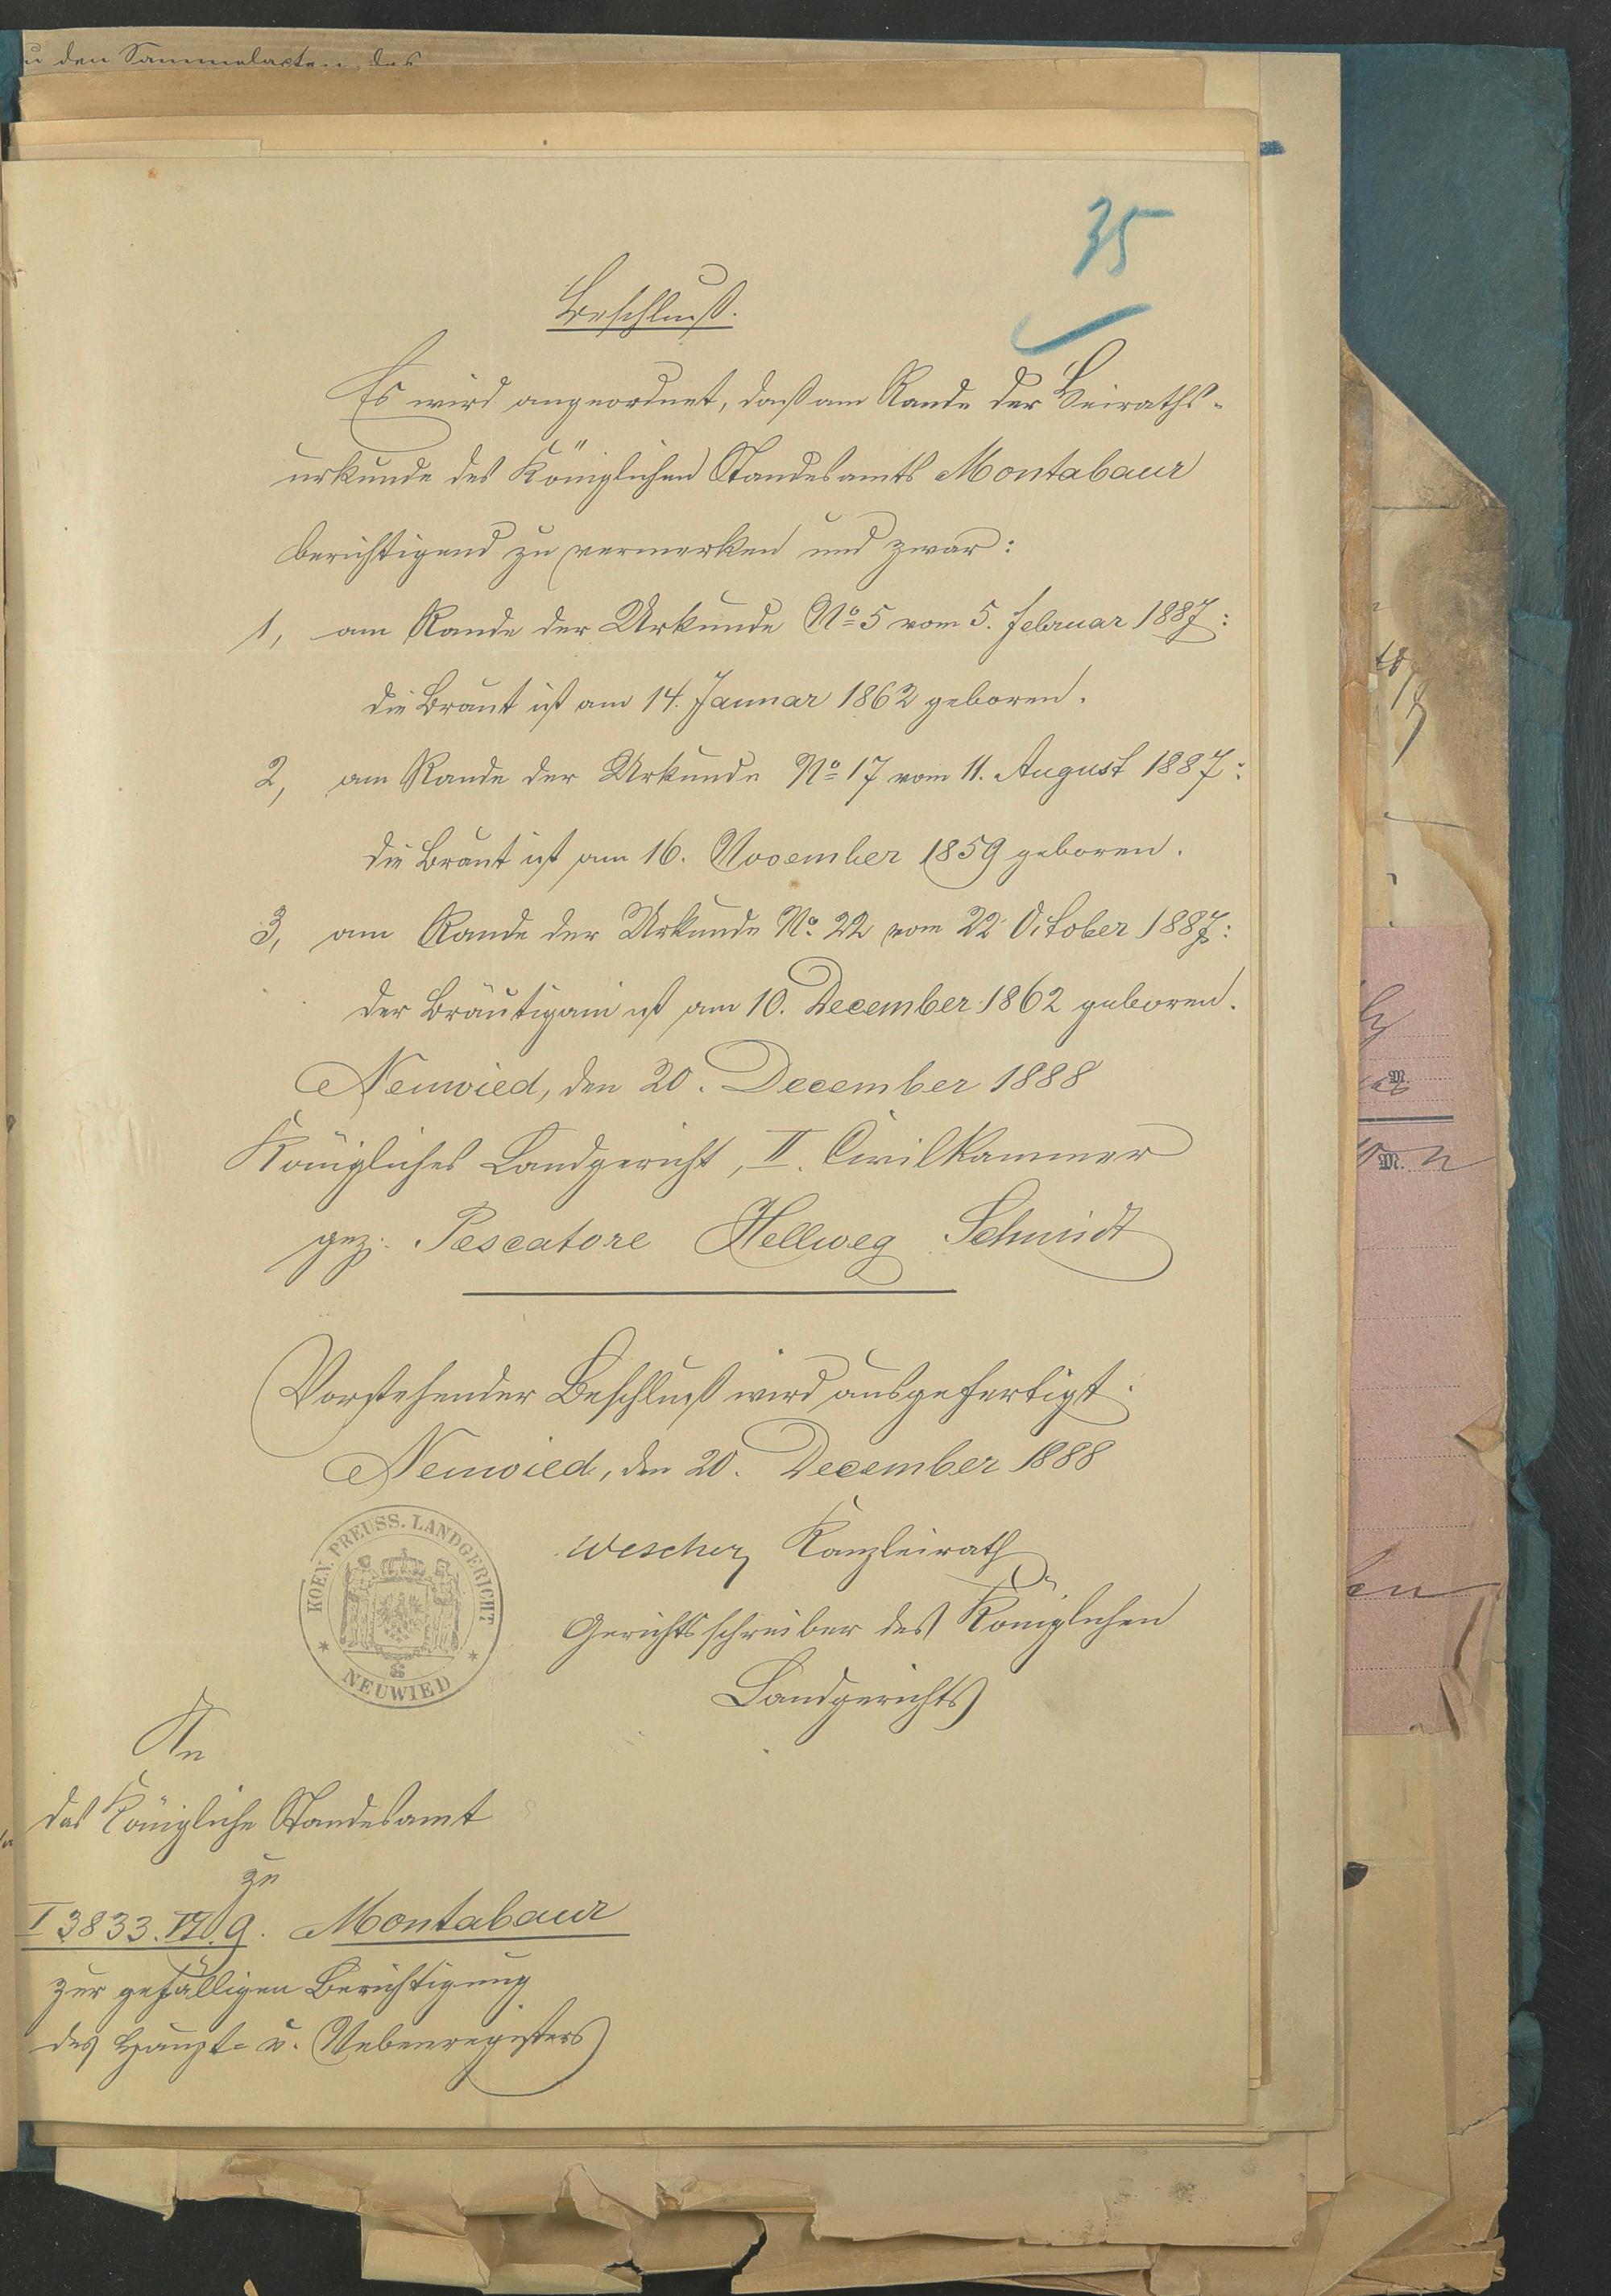 u den Sammelacten des
35
Beschluß.
Es wird angeordnet, daß am Rande der Heiraths-
urkunde des Königlichen Standesamts Montabaur
berichtigend zu vermerken und zwar:
1, am Rande der Urkunde No 5 vom 5. Februar 1887:
die Braut ist am 14. Januar 1862 geboren.
2, am Rande der Urkunde No 17 vom 11. August 1887:
die Braut ist am 16. November 1859 geboren.
3, am Rande der Urkunde No. 22 vom 22 October 1887:
der Bräutigam ist am 10. December 1862 geboren.
Neuwied, den 20. December 1888
Königliches Landgericht, II. Civilkammer
gez: Pescatore Hellweg Schmidt
Vorstehender Beschluß wird ausgefertigt.
Neuwied, den 20. December 1888
KOEN. PREUSS. LANDGERICHT
* NEUWIED *
Wescher, Kanzleirath
Gerichtsschreiber des Königlichen
Landgerichts
An
das Königliche Standesamt
zu
I 3833. VI. 9. Montabaur
zur gefälligen Berichtigung
des Haupt- u. Nebenregisters